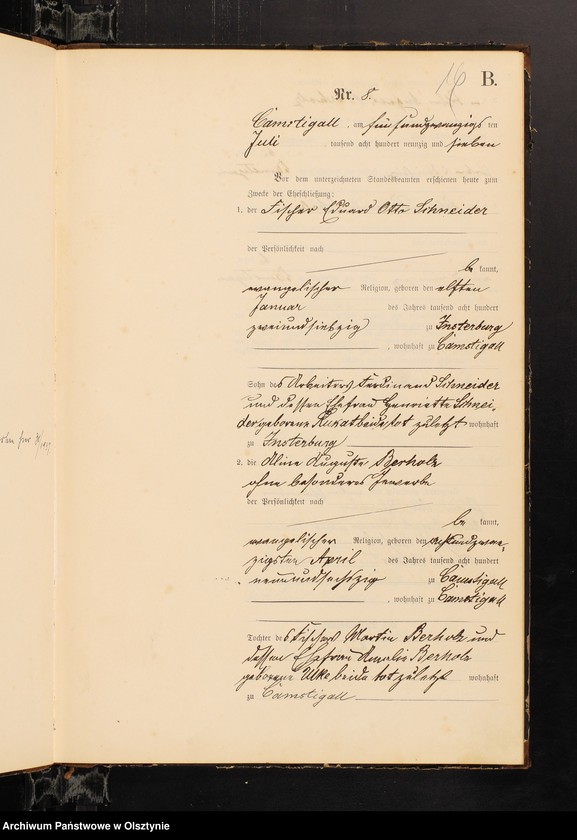 B.
Nr. 8.
Camstigall, am fünfundzwanzigsten
Juli tausend acht hundert neunzig und sieben
Vor dem unterzeichneten Standesbeamten erschienen heute zum
Zwecke der Eheschließung:
1. der Fischer Eduard Otto Schneider
der Persönlichkeit nach
bekannt,
evangelischer Religion, geboren den elften
Januar des Jahres tausend acht hundert
zweiundsiebzig zu Insterburg
, wohnhaft zu Camstigall
Sohn des Arbeiters Ferdinand Schneider
und dessen Ehefrau Henriette Schnei-
der geborene beide tot zuletzt wohnhaft
zu Insterburg
2. die Aline Auguste Berholz
ohne besonderes Gewerbe
der Persönlichkeit nach
bekannt,
evangelischer Religion, geboren den achtundzwan-
zigsten April des Jahres tausend acht hundert
neunundsechzig zu Camstigall
, wohnhaft zu Camstigall
Tochter des Fischers Martin Berholz und
dessen Ehefrau Amalie Berholz
geborene beide tot zuletzt wohnhaft
zu Camstigall
Archiwum Państwowe w Olsztynie